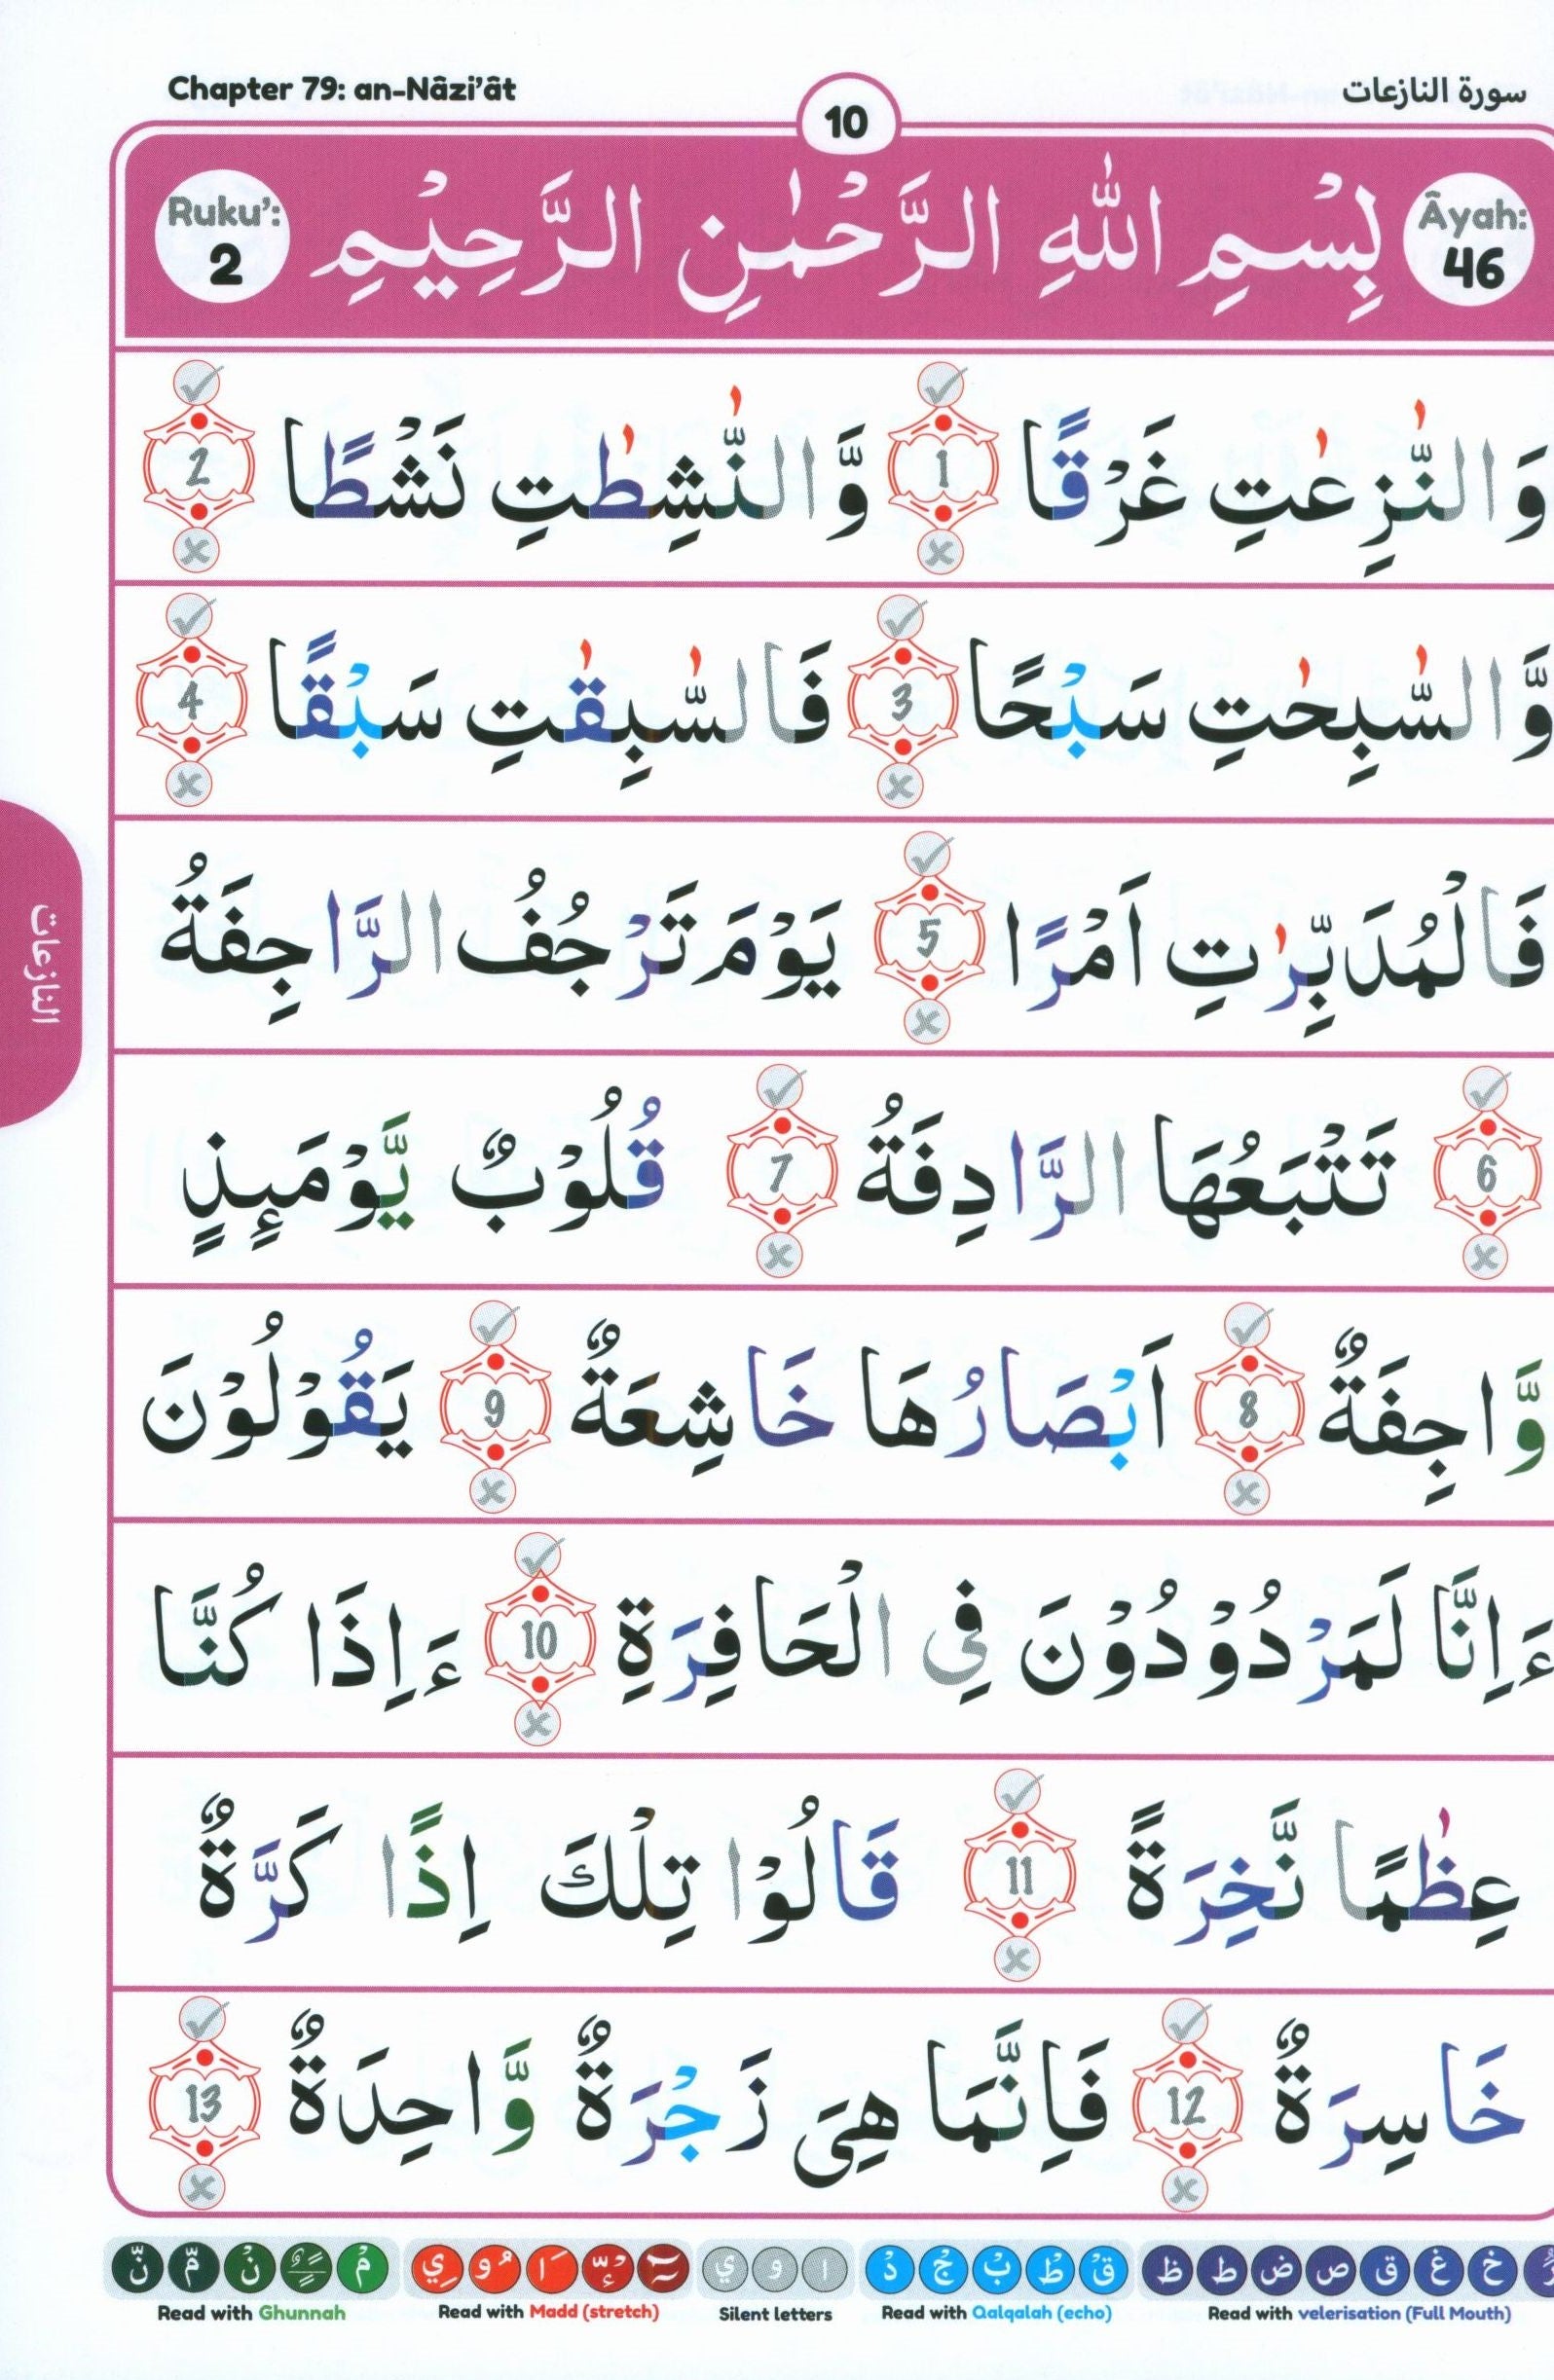 Chapter 79: an-Nâzi’ât 10 سورة النازعات
Ruku’: 2 بِسْمِ اللّٰهِ الرَّحْمٰنِ الرَّحِيْمِ Âyah: 46
وَالنّٰزِعٰتِ غَرْقًا 1 وَّالنّٰشِطٰتِ نَشْطًا 2
وَّالسّٰبِحٰتِ سَبْحًا 3 فَالسّٰبِقٰتِ سَبْقًا 4
فَالْمُدَبِّرٰتِ اَمْرًا 5 يَوْمَ تَرْجُفُ الرَّاجِفَةُ
6 تَتْبَعُهَا الرَّادِفَةُ 7 قُلُوْبٌ يَّوْمَىِٕذٍ
وَّاجِفَةٌ 8 اَبْصَارُهَا خَاشِعَةٌ 9 يَقُوْلُوْنَ
ءَاِنَّا لَمَرْدُوْدُوْنَ فِى الْحَافِرَةِ 10 ءَاِذَا كُنَّا
عِظٰمًا نَّخِرَةً 11 قَالُوْا تِلْكَ اِذًا كَرَّةٌ
خَاسِرَةٌ 12 فَاِنَّمَا هِىَ زَجْرَةٌ وَّاحِدَةٌ 13
النازعات
Read with Ghunnah Read with Madd (stretch) Silent letters Read with Qalqalah (echo) Read with velerisation (Full Mouth)